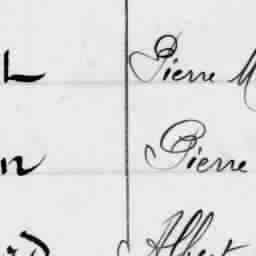 L Pierre M
n Pierre
rd Albert